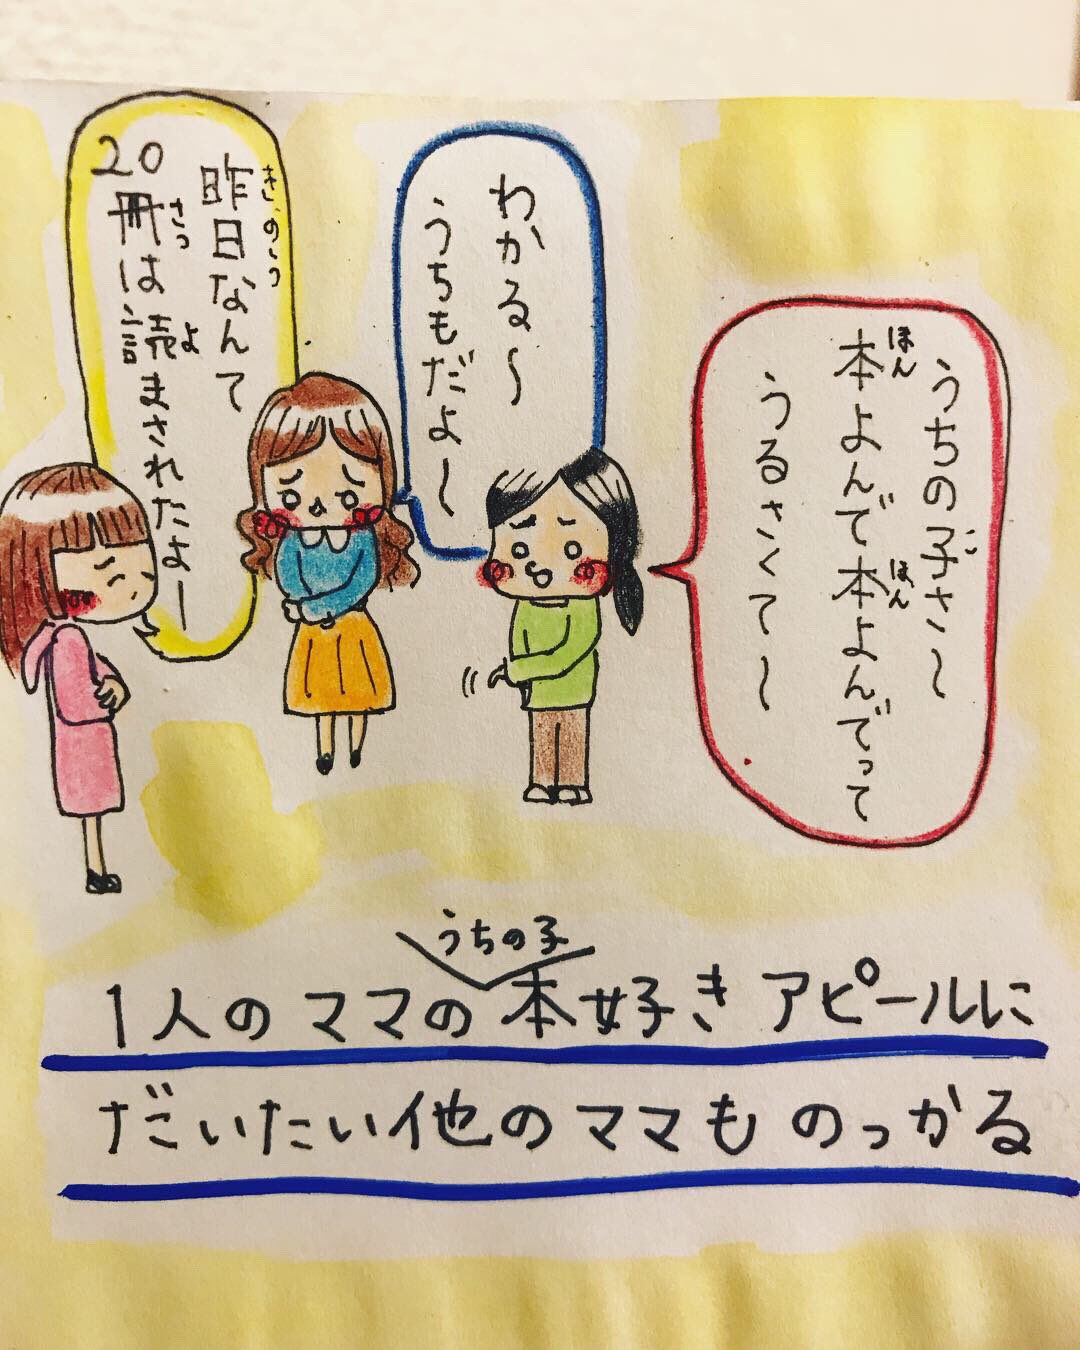 うちの子さ〜
本よんで本よんでって
うるさくて〜
わかる〜
うちもだよ〜
昨日なんて
20冊は読まされたよー
うちの子
1人のママの本好きアピールに
だいたい他のママものっかる